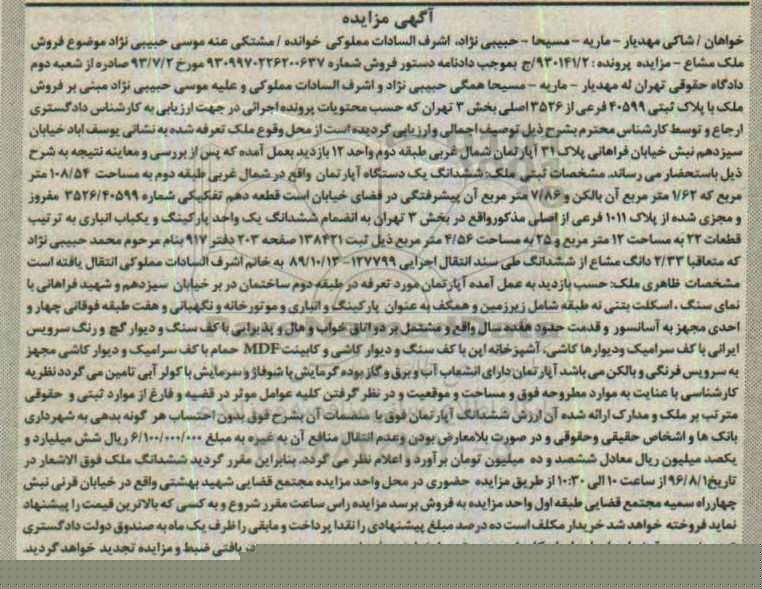 آگهی مزایده
خواهان / شاکی مهدیار - ماریه - مسیحا - حبیبی نژاد، اشرف السادات مملوکی خوانده / مشتکی عنه موسی حبیبی نژاد موضوع فروش
ملک مشاع - مزایده پرونده: ۹۳۰۱۴۱/۲/ج بموجب دادنامه دستور فروش شماره ۹۳۰۹۹۷۰۲۲۶۲۰۰۶۳۷ مورخ ۹۳/۷/۲ صادره از شعبه دوم
دادگاه حقوقی تهران له مهدیار - ماریه - مسیحا همگی حبیبی نژاد و اشرف السادات مملوکی و علیه موسی حبیبی نژاد مبنی بر فروش
ملک با پلاک ثبتی ۴۰۵۹۹ فرعی از ۳۵۲۶ اصلی بخش ۳ تهران که حسب محتویات پرونده اجرائی در جهت ارزیابی به کارشناس دادگستری
ارجاع و توسط کارشناس محترم بشرح ذیل توصیف اجمالی و ارزیابی گردیده است از محل وقوع ملک تعرفه شده به نشانی یوسف اباد خیابان
سیزدهم نبش خیابان فراهانی پلاک ۳۱ آپارتمان شمال غربی طبقه دوم واحد ۱۲ بازدید بعمل آمده که پس از بررسی و معاینه نتیجه به شرح
ذیل باستحضار می رساند. مشخصات ثبتی ملک: ششدانگ یک دستگاه آپارتمان واقع در شمال غربی طبقه دوم به مساحت ۱۰۸/۵۴ متر
مربع که ۱/۶۲ متر مربع آن بالکن و ۷/۸۶ متر مربع آن پیشرفتگی در فضای خیابان است قطعه دهم تفکیکی شماره ۳۵۲۶/۴۰۵۹۹ مفروز
و مجزی شده از پلاک ۱۰۱۱ فرعی از اصلی مذکور واقع در بخش ۳ تهران به انضمام ششدانگ یک واحد پارکینگ و یکباب انباری به ترتیب
قطعات ۲۲ به مساحت ۱۲ متر مربع و ۲۵ به مساحت ۴/۵۶ متر مربع ذیل ثبت ۱۳۸۴۲۱ صفحه ۲۰۳ دفتر ۹۱۷ بنام مرحوم محمد حبیبی نژاد
که متعاقبا ۲/۳۳ دانگ مشاع از ششدانگ طی سند انتقال اجرایی ۱۲۷۷۹۹- ۸۹/۱۰/۱۳ به خانم اشرف السادات مملوکی انتقال یافته است
مشخصات ظاهری ملک: حسب بازدید به عمل آمده آپارتمان مورد تعرفه در طبقه دوم ساختمان در بر خیابان سیزدهم و شهید فراهانی با
نمای سنگ ، اسکلت بتنی نه طبقه شامل زیرزمین و همکف به عنوان پارکینگ و انباری و موتورخانه و نگهبانی و هفت طبقه فوقانی چهار و
احدی مجهز به آسانسور و قدمت حدود هفده سال واقع و مشتمل بر دو اتاق خواب و هال و پذیرایی با کف سنگ و دیوار گچ و رنگ سرویس
ایرانی با کف سرامیک و دیوارها کاشی، آشپزخانه اپن با کف سنگ و دیوار کاشی و کابینت MDF حمام با کف سرامیک و دیوار کاشی مجهز
به سرویس فرنگی و بالکن می باشد آپارتمان دارای انشعاب آب و برق و گاز بوده گرمایش با شوفاژ و سرمایش با کولر آبی تامین می گردد نظریه
کارشناسی با عنایت به موارد مطروحه فوق و مساحت و موقعیت و در نظر گرفتن کلیه عوامل موثر در قضیه و فارغ از موارد ثبتی و حقوقی
مترتب بر ملک و مدارک ارائه شده آن ارزش ششدانگ آپارتمان فوق با منضمات آن بشرح فوق بدون احتساب هر گونه بدهی به شهرداری
بانک ها و اشخاص حقیقی وحقوقی و در صورت بلامعارض بودن وعدم انتقال منافع آن به غیره به مبلغ ۶/۱۰۰/۰۰۰/۰۰۰ ریال شش میلیارد و
یکصد میلیون ریال معادل ششصد و ده میلیون تومان برآورد و اعلام نظر می گردد. بنابراین مقرر گردید ششدانگ ملک فوق الاشعار در
تاریخ ۹۶/۸/۱ از ساعت ۱۰ الی ۱۰:۳۰ از طریق مزایده حضوری در محل واحد مزایده مجتمع قضایی شهید بهشتی واقع در خیابان قرنی نبش
چهارراه سمیه مجتمع قضایی طبقه اول واحد مزایده به فروش برسد مزایده راس ساعت مقرر شروع و به کسی که بالاترین قیمت را پیشنهاد
نماید فروخته خواهد شد خریدار مکلف است ده درصد مبلغ پیشنهادی را نقدا پرداخت و مابقی را ظرف یک ماه به صندوق دولت دادگستری
دریافتی ضبط و مزایده تجدید خواهد گردید.